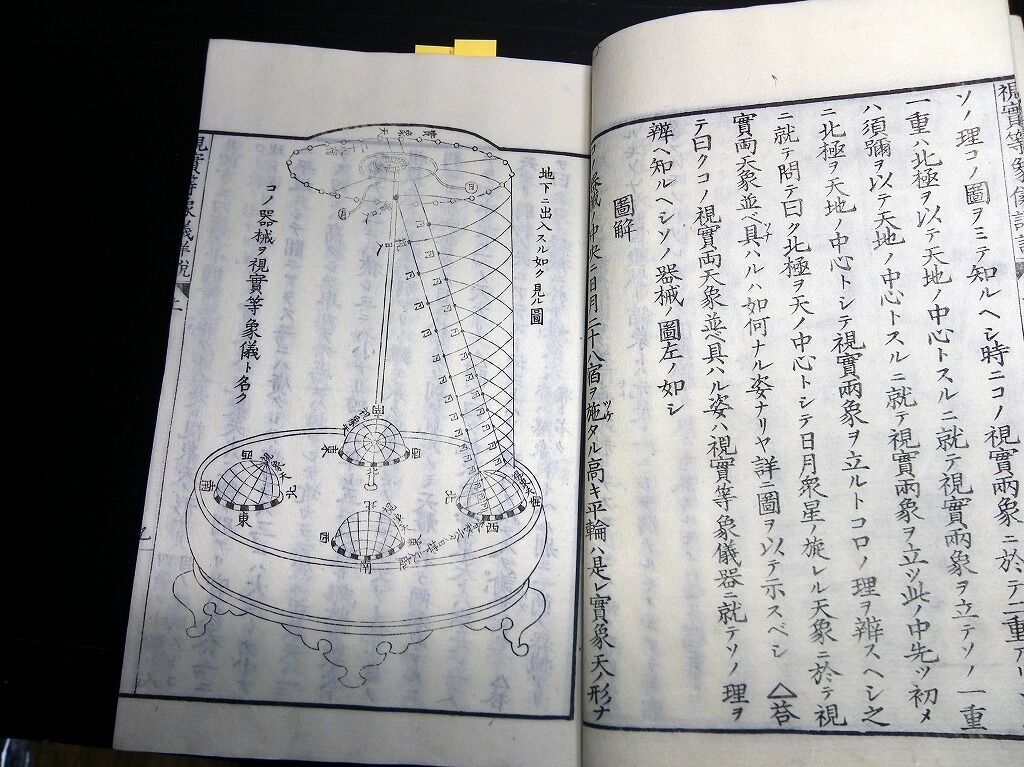 視實等象儀詳説
ソノ理コノ圖ヲミテ知ルヘシ時ニコノ視實兩象ニ於テ二重アリ
一重ハ北極ヲ以テ天地ノ中心トスルニ就テ視實兩象ヲ立テソノ一重
ハ須彌ヲ以テ天地ノ中心トスルニ就テ視實兩象ヲ立ツ此ノ中先ツ初メ
ニ北極ヲ天地ノ中心トシテ視實兩象ヲ立ルトコロノ理ヲ辨スヘシ之
ニ就テ問テ曰ク北極ヲ天ノ中心トシテ日月衆星ノ旋レル天象ニ於テ視
實両天象並ベ具ハルハ如何ナル姿ナリヤ詳ニ圖ヲ以テ示スベシ △荅
テ曰クコノ視實両天象並ベ具ハル姿ハ視實等象儀器ニ就テソノ理ヲ
辨ヘ知ルヘシソノ器械ノ圖左ノ如シ
圖解
器械ノ中央ニ日月二十八宿ヲ施タル高キ平輪ハ是レ實象天ノ形ナ
地下ニ出入スル如ク見ル圖
實象天
西
東
北
南
視象天
東
西
北
西
南
北
西
南
コノ器械ヲ視實等象儀ト名ク
視實等象儀詳説
二